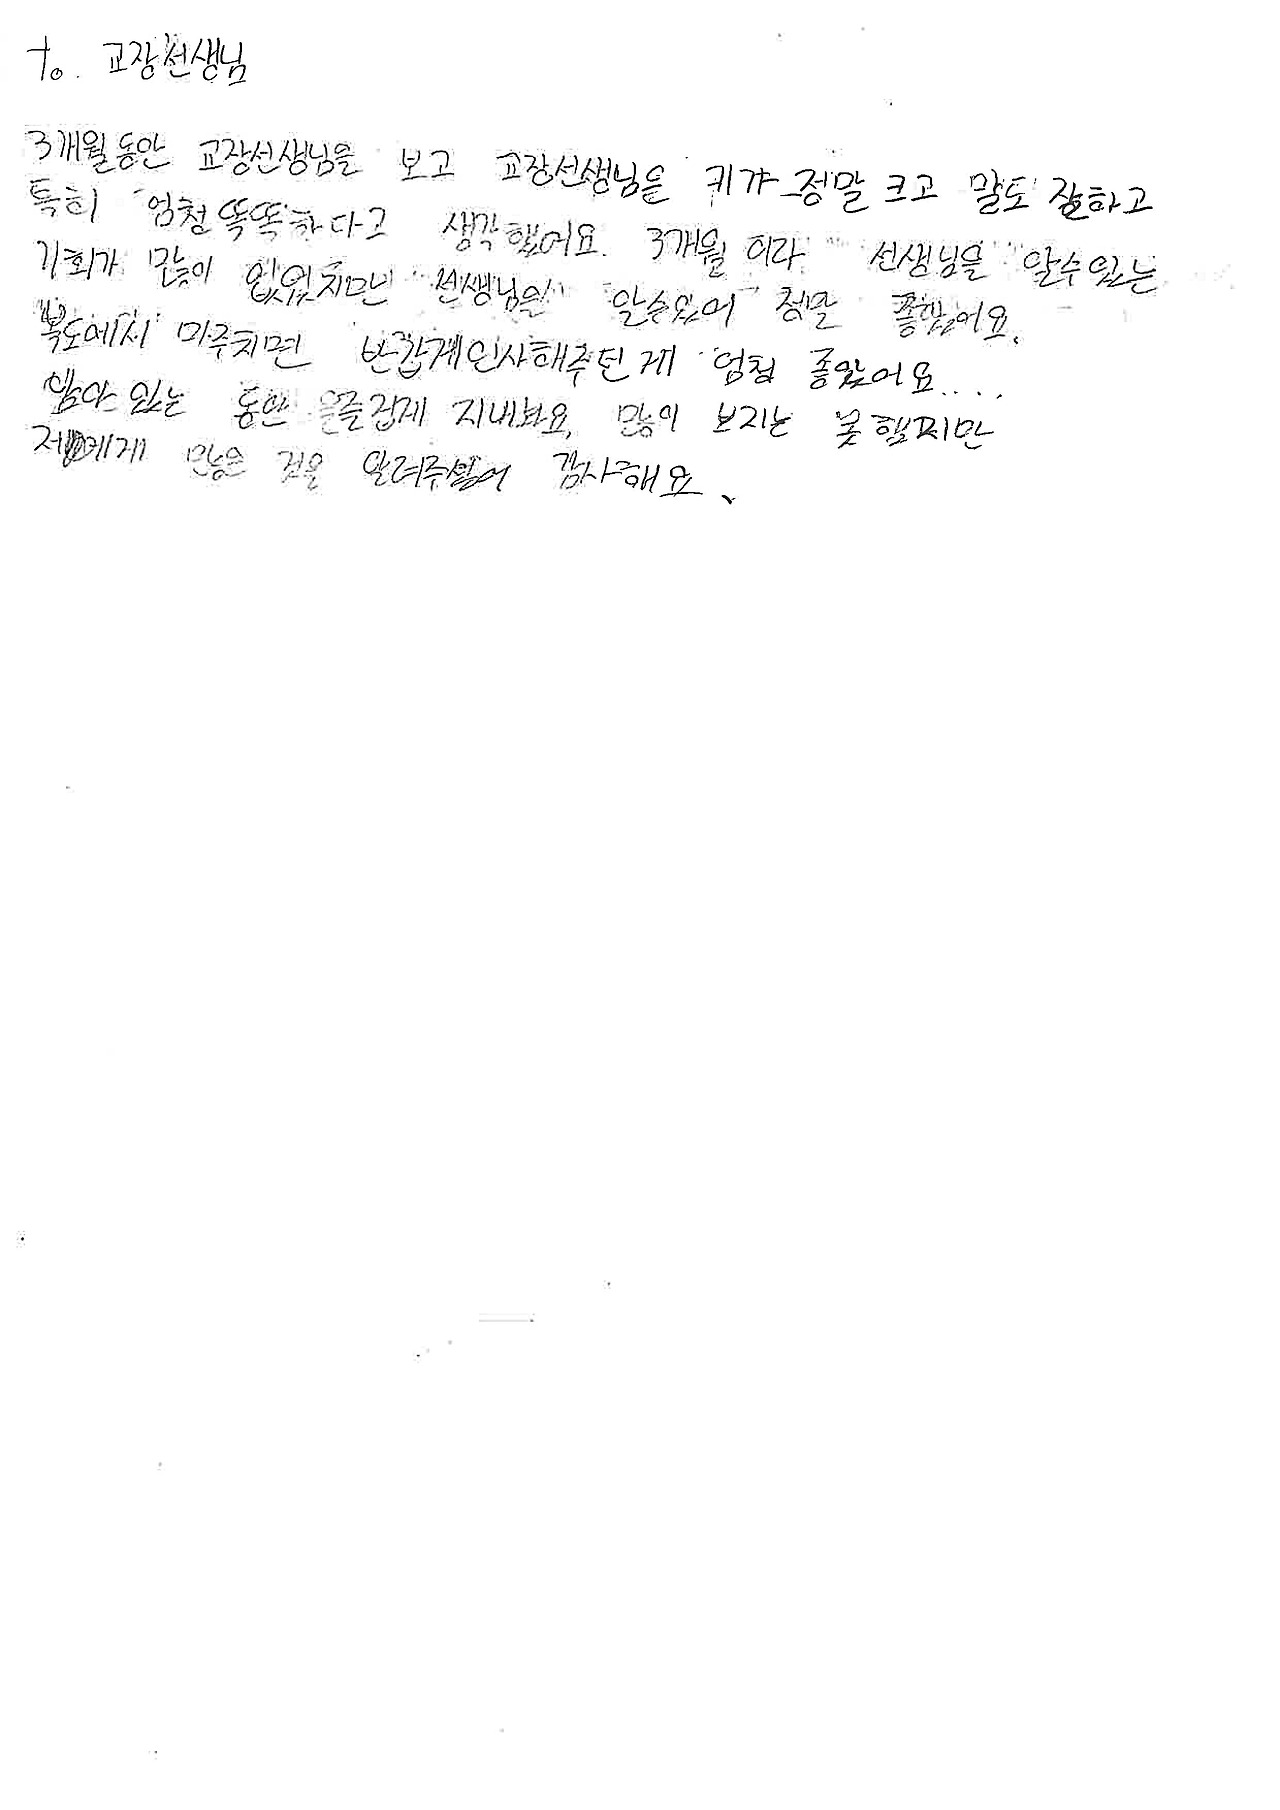 to. 교장선생님
3개월동안 교장선생님을 보고 교장선생님을 키가 정말 크고 말도 잘하고
특히 엄청 똑똑하다고 생각했어요. 3개월 이라 선생님을 알수있는
기회가 많이 없었지만 선생님을 알수있어 정말 좋았어요.
복도에서 마주치면 반갑게인사해주던게 엄청 좋았어요....
남아 있는 동안 즐겁게 지내봐요, 많이 보지는 못했지만
저에게 많은 것을 알려주셨어 감사해요.